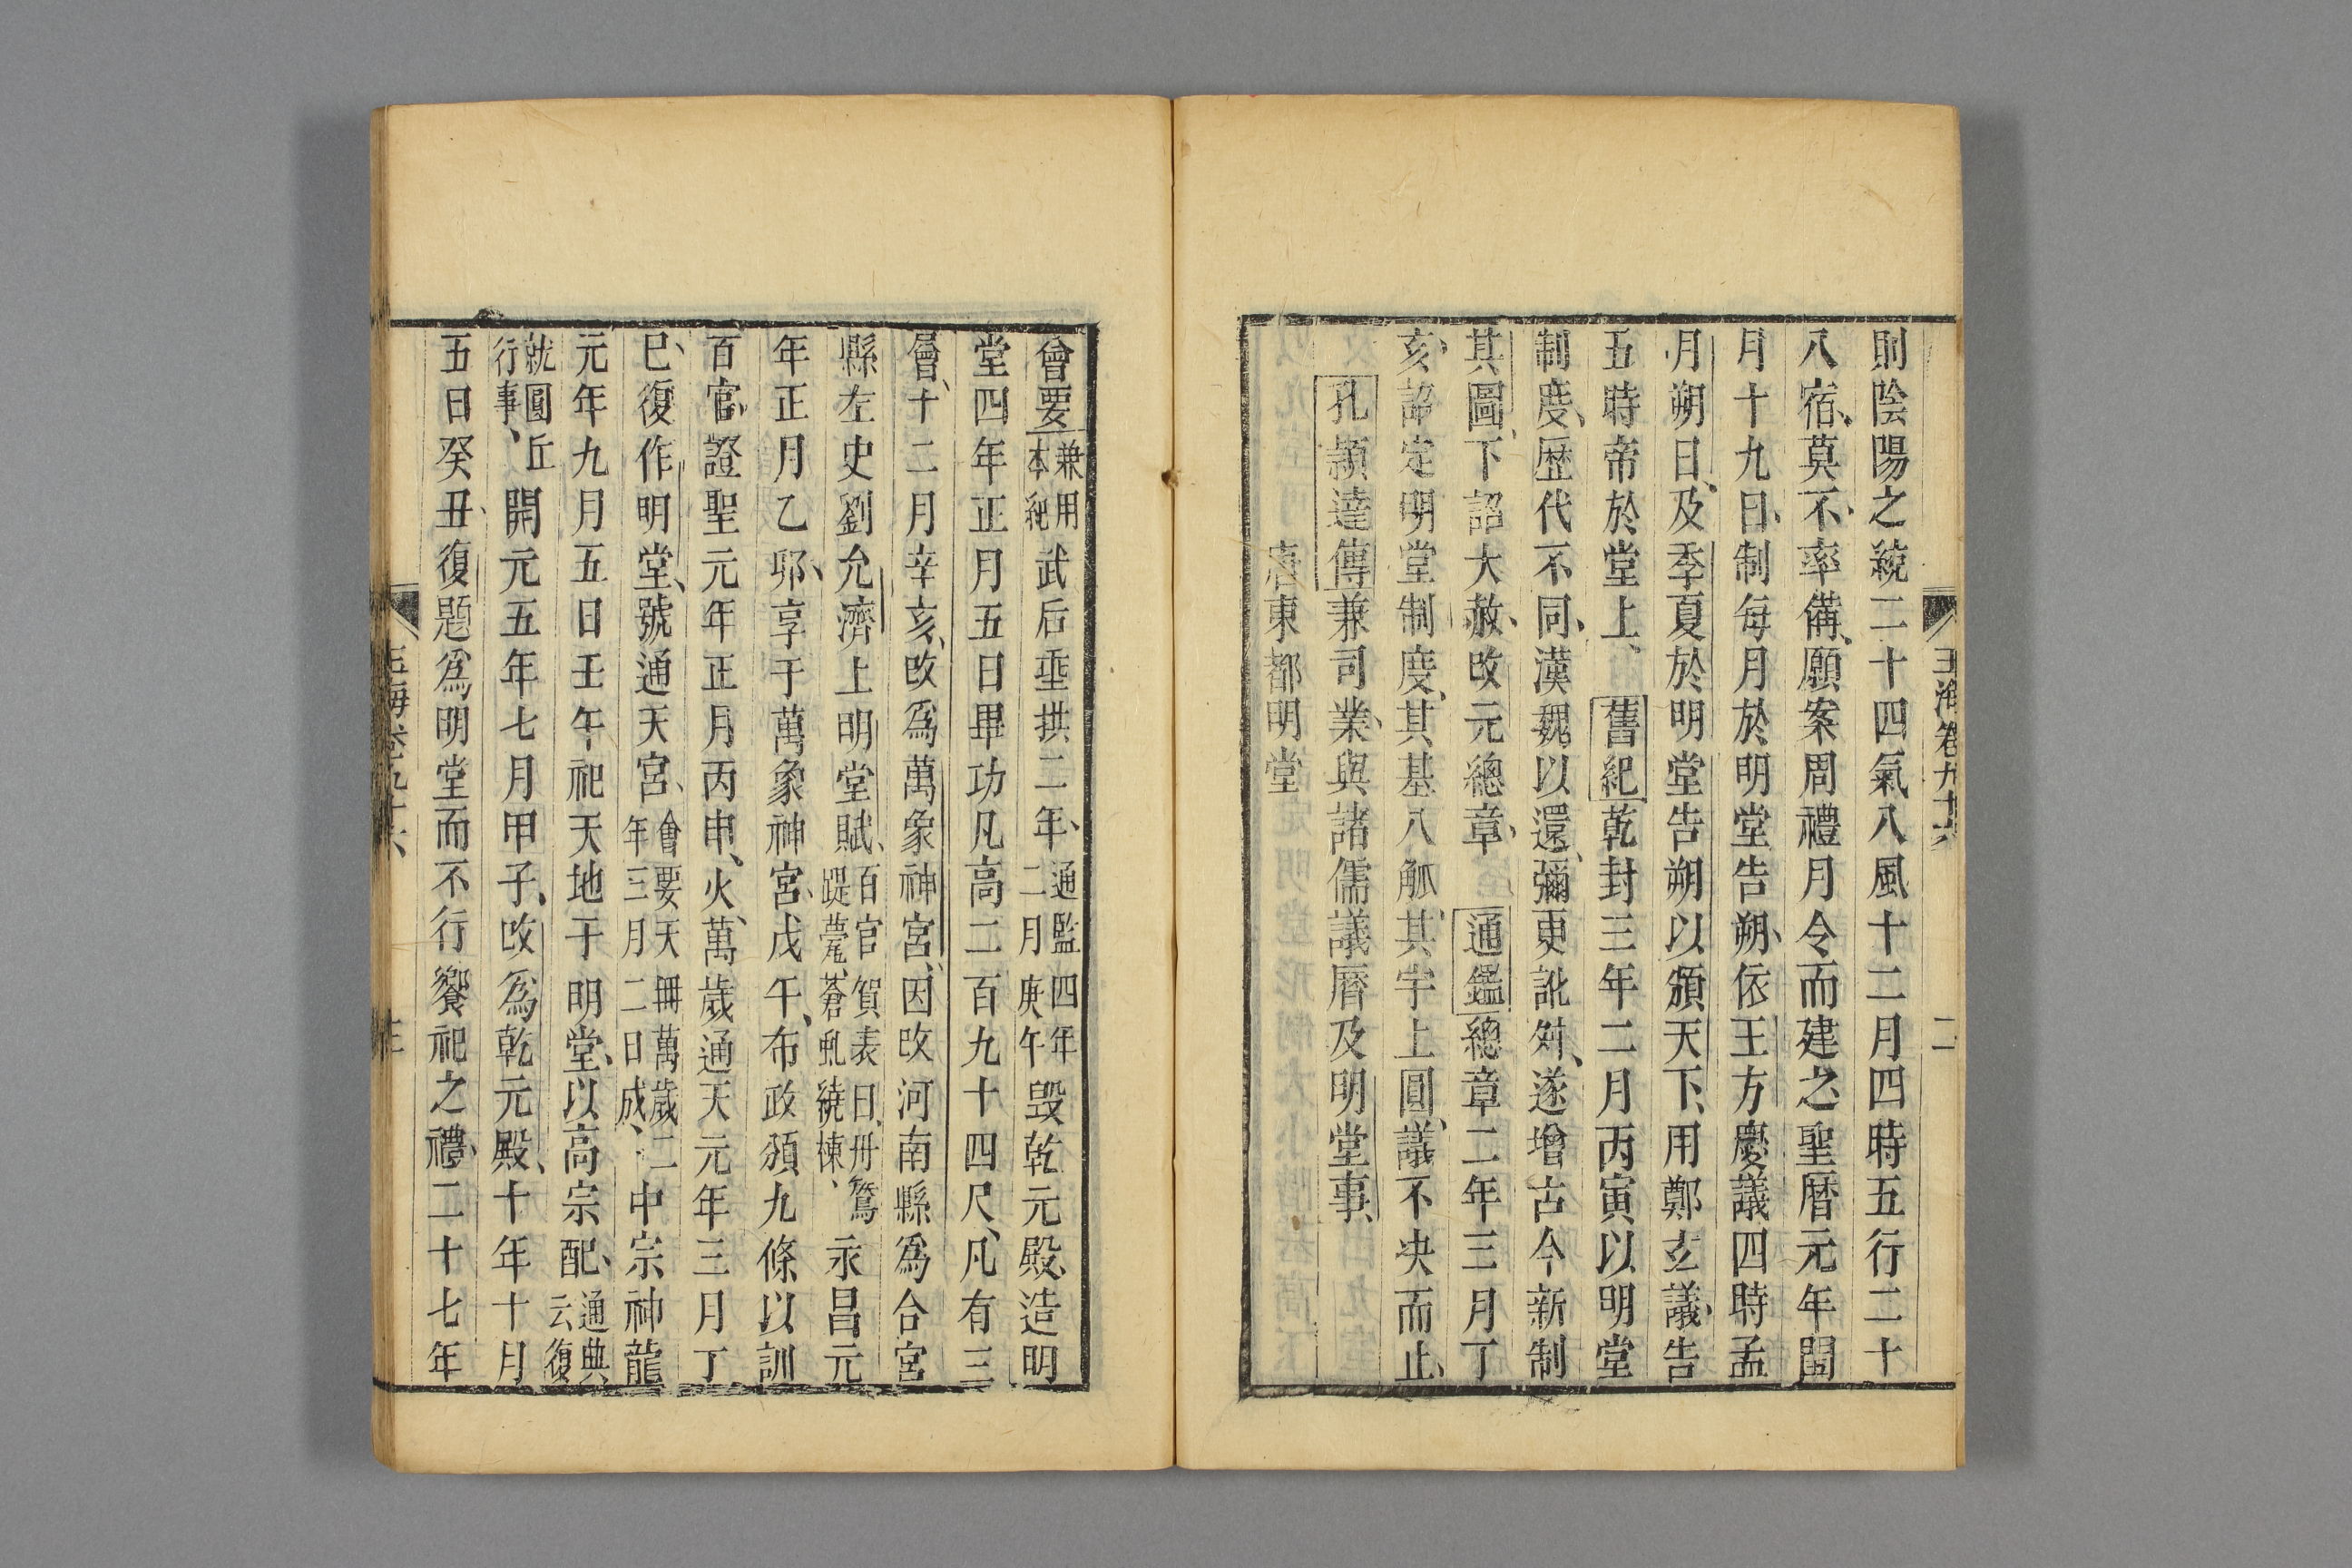 玉海卷九十六 二
則陰陽之統二十四氣八風十二月四時五行二十
八宿、莫不率備、願案周禮月令而建之聖曆元年閏
月十九日、制每月於明堂告朔、依王方慶議四時孟
月朔日、及季夏於明堂告朔以頒天下、用鄭玄議、告
五時帝於堂上、舊紀乾封三年二月丙寅以明堂
制度、歷代不同、漢魏以還、彌更訛舛、遂增古今新制
其圖、下詔大赦、改元總章、通鑑總章二年三月丁
亥、詔定明堂制度、其基八觚、其宇上圓、議不决而止、
孔頴達傳兼司業、與諸儒議曆及明堂事、
唐東都明堂
會要兼用本紀武后垂拱二年、通監四年二月庚午毀乾元殿、造明
堂四年正月五日畢功凡高二百九十四尺、凡有三
層、十二月辛亥、改爲萬象神宮、因改河南縣爲合宮
縣左史劉允濟上明堂賦、百官賀表曰、丹鶩踶甍、蒼虬繞棟、永昌元
年正月乙邜、享于萬象神宮、戊午、布政頒九條以訓
百官、證聖元年正月丙申、火、萬歲通天元年三月丁
巳、復作明堂、號通天宮、會要天冊萬歲二年三月二日成、中宗神龍
元年九月五日壬午祀天地于明堂、以高宗配、通典云復
就圓丘行事、開元五年七月甲子、改爲乾元殿、十年十月
五日癸丑、復題爲明堂而不行饗祀之禮、二十七年
玉海卷九十六 三